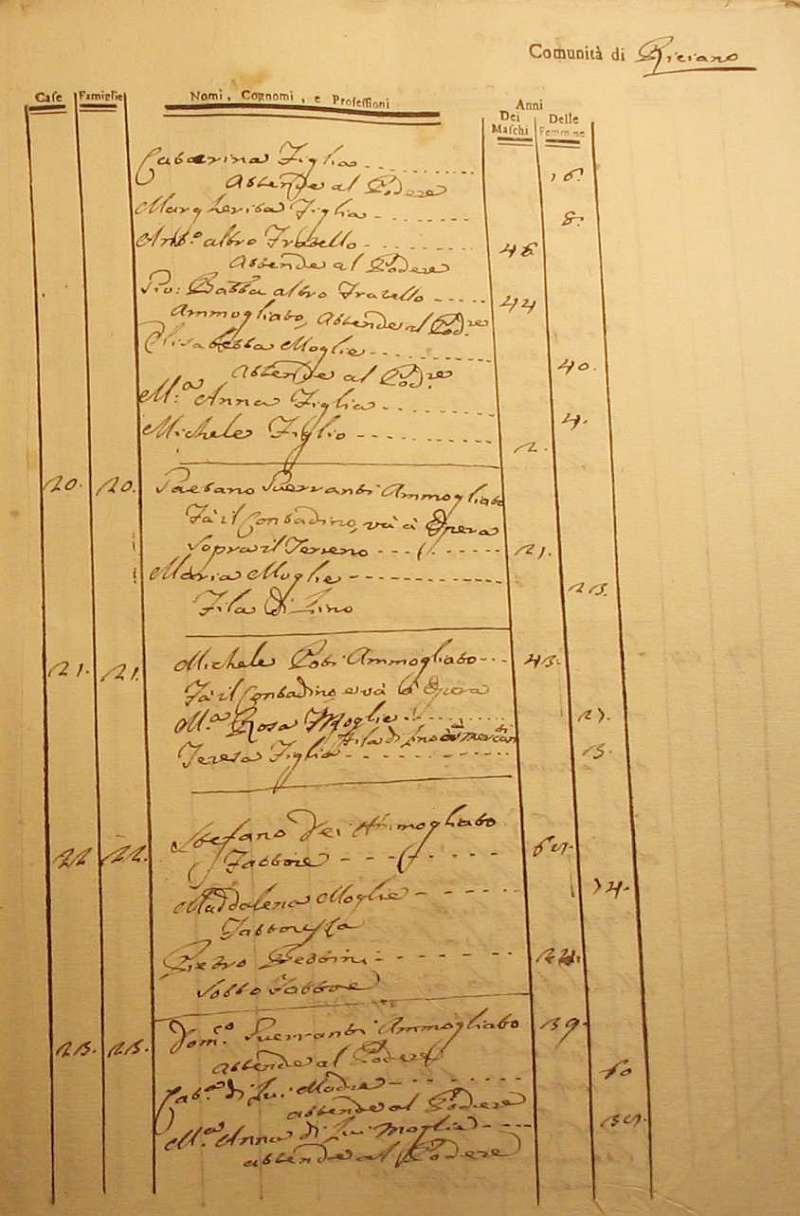 Comunità di
Case Famiglie Nomi, Cognomi, e Professioni Anni
Dei Maschi Delle Femmine
Catterina Figlia 16.
Attende al Podere
Margherita Figlia 8.
Ant.o altro Fratello 46
Attende al Podere
Gio: Batta altro Fratello 44
Ammogliato, Attende al Pod.re
Elisabetta Moglie 40.
Attende al Pod.re
M.a Anna Figlia 4.
Michele Figlio 2.
20. 20. Gaetano Guerranti Ammogliato
Fà il Contadino, và à Opera
Sopra il Terreno 21.
Maria Moglie 23.
Fila di Lino
21. 21. Michele Ammogliato 43.
Fà il Contadino e và à Opera
M.a Rosa Moglie 27.
Fila di Lino
Teresa Figlia 3.
22 22. Stefano Dei Ammogliato
Fattore
Maddalena Moglie 74.
Fattoressa
Pietro
Sotto Fattore
23. 23. Dom.co Guerranti Ammogliato 39.
attende al Podere
Cat.a di Lui Madre 60
attende al Podere
M.a Anna di Lui Moglie
attende al Podere